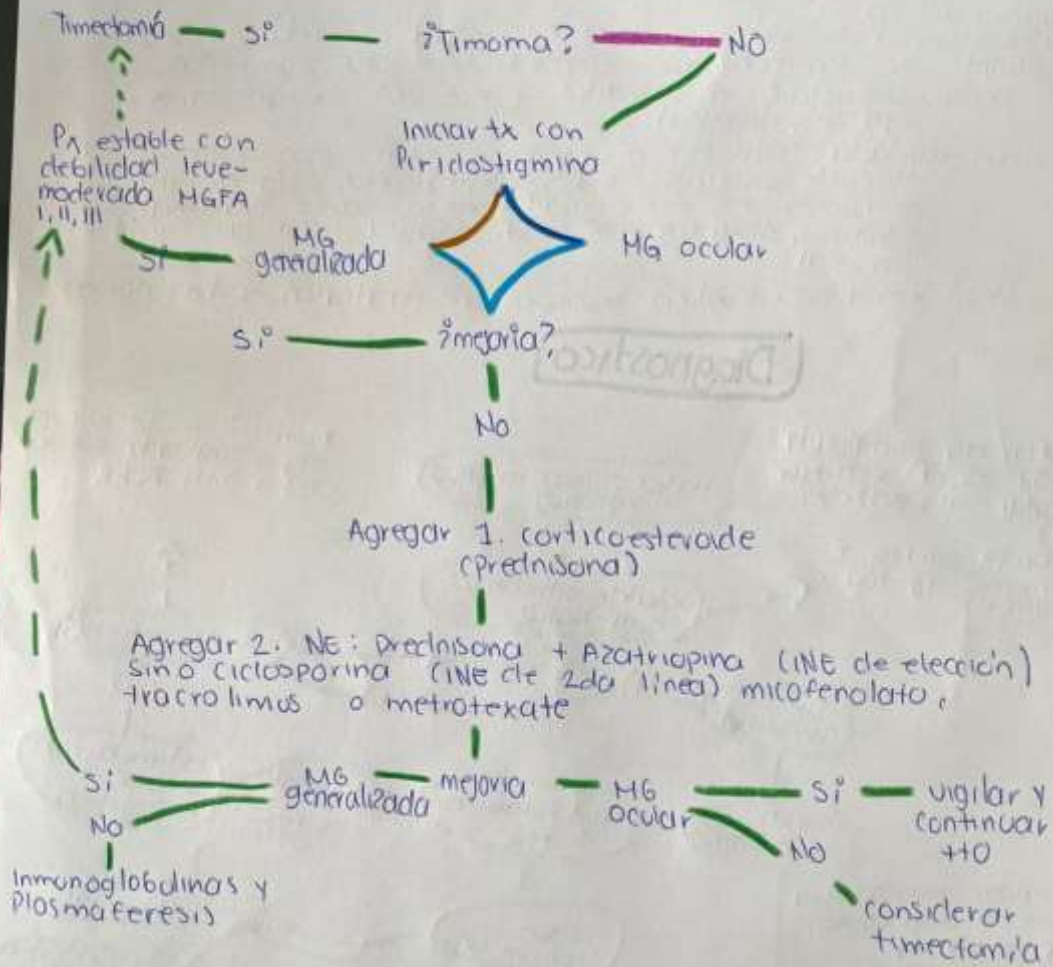 Timectomía — Si — ¿Timoma? — NO
Iniciar tx con
Piridostigmina
Px estable con
debilidad leve-
moderada MGFA
I, II, III
Si
MG
generalizada
MG ocular
Si — ¿mejoria?
No
Agregar 1. corticoesteroide
(prednisona)
Agregar 2. NE: Prednisona + Azatriopina (INE de elección)
sino ciclosporina (INE de 2da línea) micofenolato,
tracrolimus o metrotexate
Si
No
MG
generalizada
mejoria
MG
ocular
Si
No
vigilar y
continuar
tto
Inmunoglobulinas y
Plasmaferesis
considerar
timectomia
Diagnostico